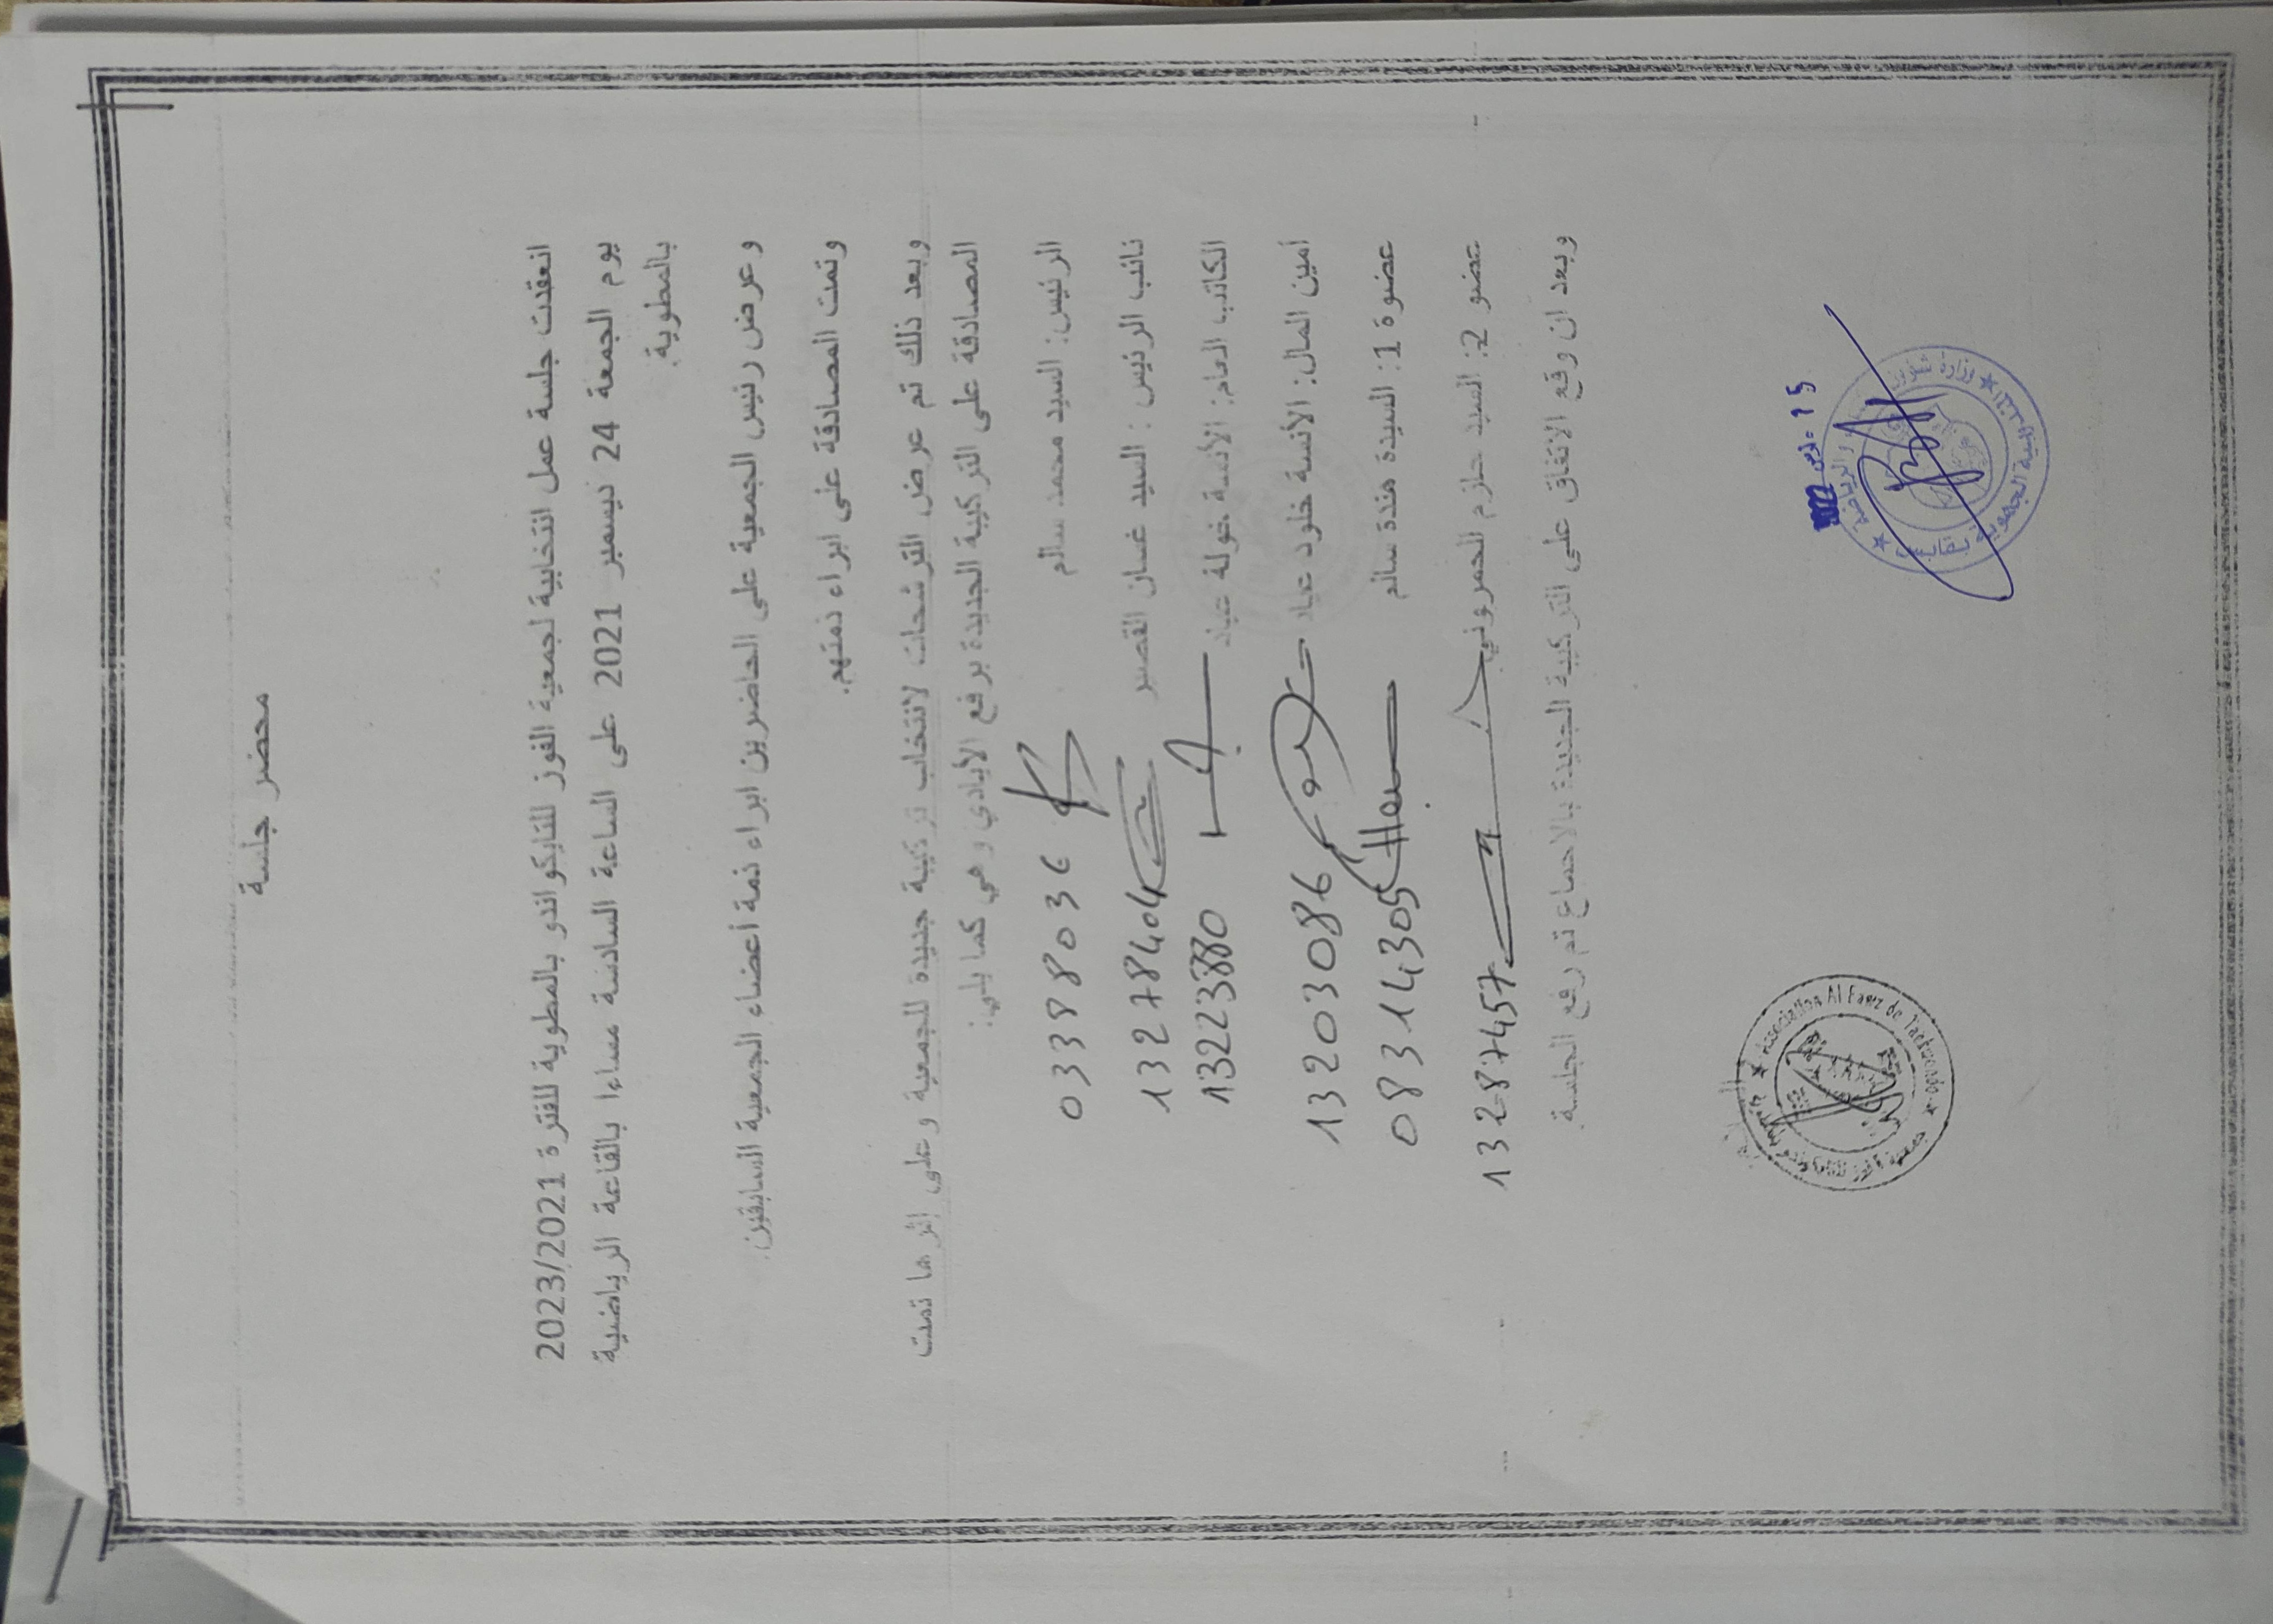 محضر جلسة
انعقدت جلسة عمل انتخابية لجمعية الفوز للتايكواندو بالمطوية للفترة 2023/2021
يوم الجمعة 24 ديسمبر 2021 على الساعة السادسة مساءا بالقاعة الرياضية
بالمطوية.
وعرض رئيس الجمعية على الحاضرين ابراء ذمة أعضاء الجمعية السابقين.
وتمت المصادقة على ابراء ذمتهم.
وبعد ذلك تم عرض الترشحات لانتخاب تركيبة جديدة للجمعية وعلى إثرها تمت
المصادقة على التركيبة الجديدة برفع الأيادي وهي كما يلي:
الرئيس: السيد محمد سالم 03388036
نائب الرئيس : السيد غسان القصير 13278404
الكاتب العام: الأنسة خولة عياد 13223880
أمين المال: الأنسة خلود عياد 13203086
عضوة 1: السيدة هندة سالم 08314305
عضو 2: السيد حازم الحمروني 13287457
وبعد ان وقع الاتفاق على التركيبة الجديدة بالاجماع تم رفع الجلسة.
15 مارس 2022
Association Al Fawz de Taekwondo